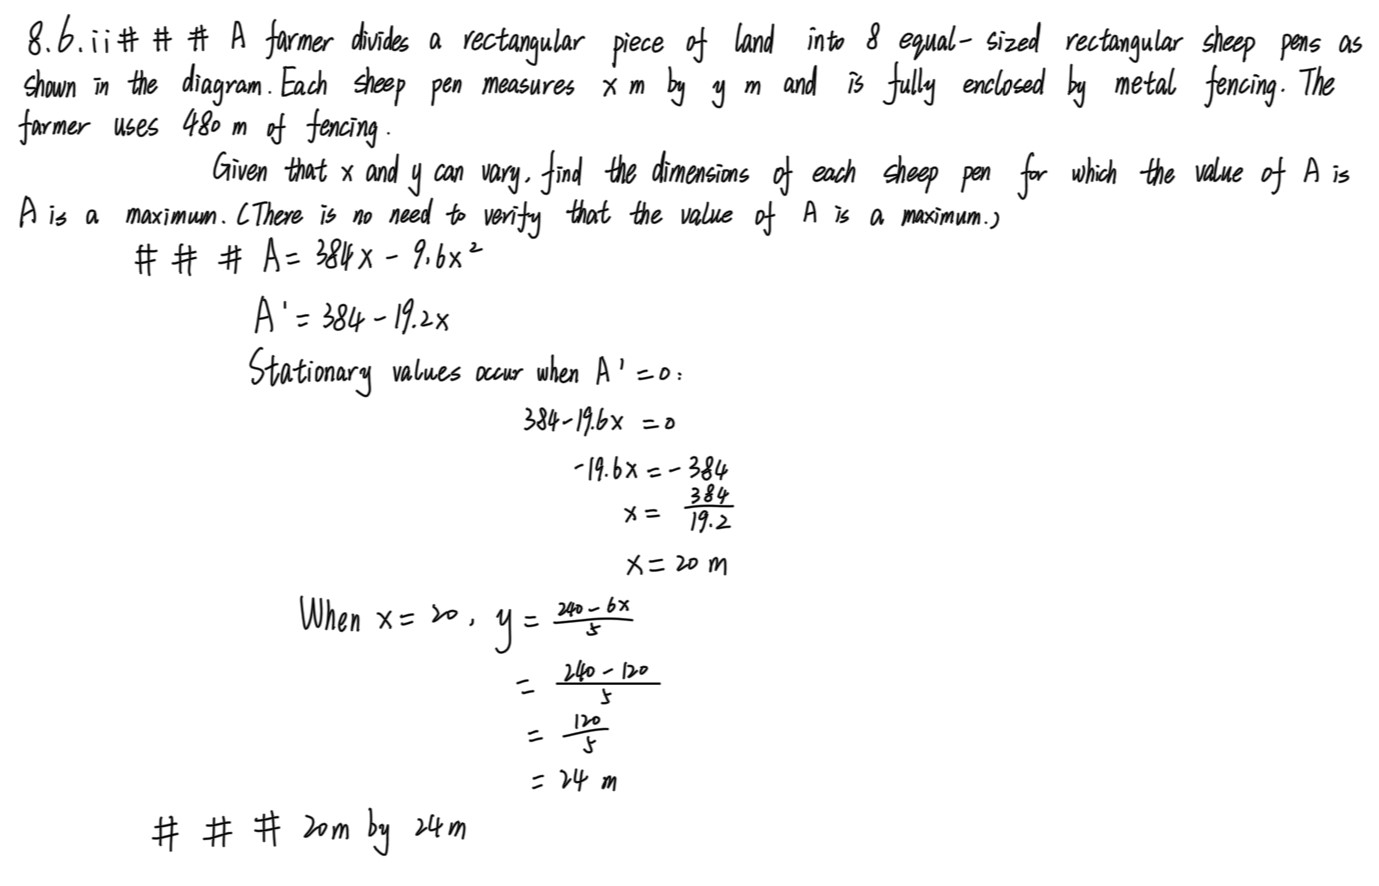 8.6.ii # # # A farmer divides a rectangular piece of land into 8 equal-sized rectangular sheep pens as
shown in the diagram. Each sheep pen measures x m by y m and is fully enclosed by metal fencing. The
farmer uses 480 m of fencing.
Given that x and y can vary, find the dimensions of each sheep pen for which the value of A is
A is a maximum. (There is no need to verify that the value of A is a maximum.)
# # # A = 384x - 9.6x²
A' = 384 - 19.2x
Stationary values occur when A' = 0:
384 - 19.6x = 0
-19.6x = -384
x = 384/19.2
x = 20 m
When x = 20, y = (240 - 6x)/5
= (240 - 120)/5
= 120/5
= 24 m
# # # 20m by 24m